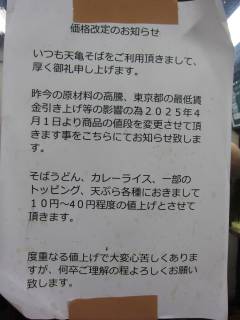 価格改定のお知らせ
いつも天亀そばをご利用頂きまして、
厚く御礼申し上げます。
昨今の原材料の高騰、東京都の最低賃
金引き上げ等の影響の為２０２５年４
月１日より商品の値段を変更させて頂
きます事をこちらにてお知らせ致しま
す。
そばうどん、カレーライス、一部の
トッピング、天ぷら各種におきまして
１０円～４０円程度の値上げとさせて
頂きます。
度重なる値上げで大変心苦しくありま
すが、何卒ご理解の程よろしくお願い
致します。